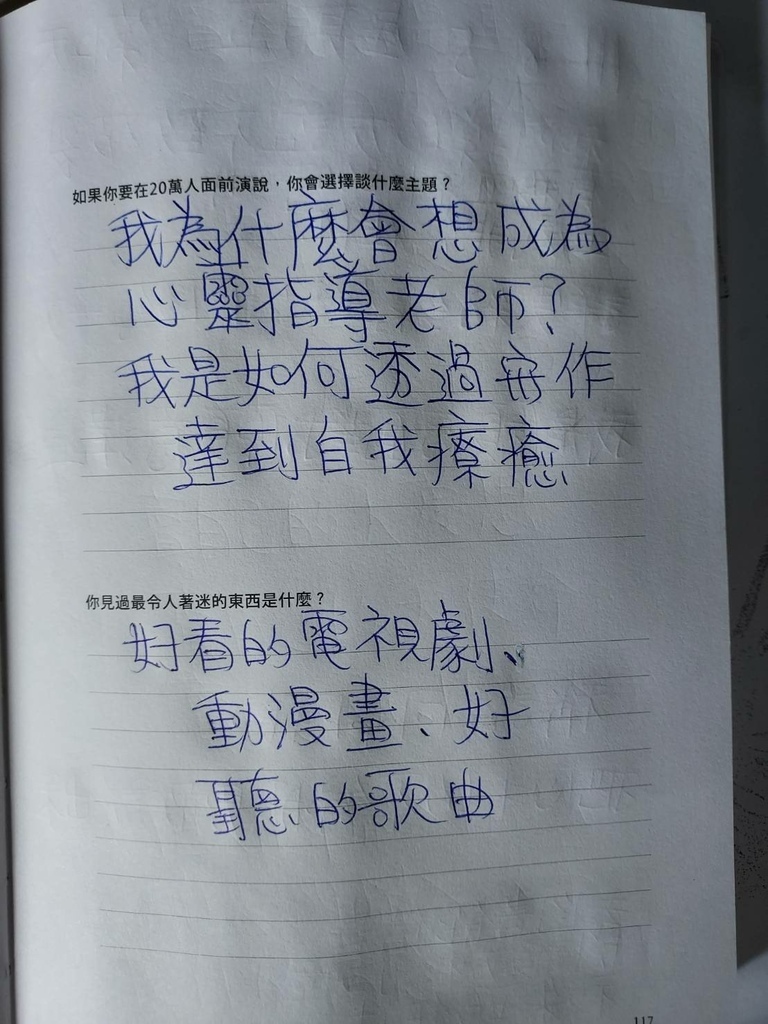 如果你要在20萬人面前演說，你會選擇談什麼主題？
我為什麼會想成為
心靈指導老師？
我是如何透過 作
達到自我療癒
你見過最令人著迷的東西是什麼？
好看的電視劇、
動漫畫、好
聽的歌曲
117